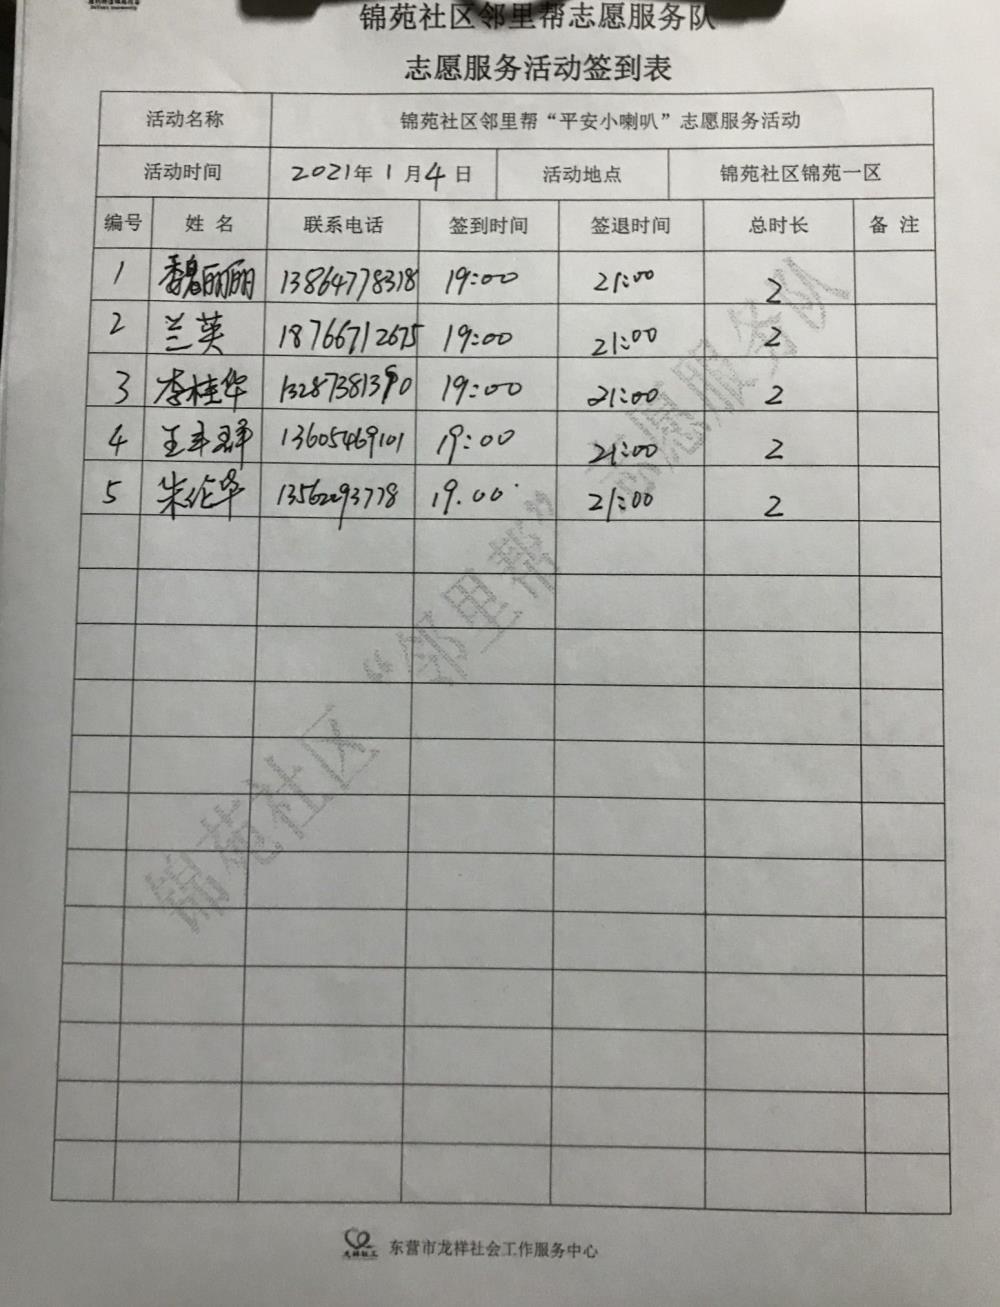 锦苑社区邻里帮志愿服务队
志愿服务活动签到表
活动名称 锦苑社区邻里帮“平安小喇叭”志愿服务活动
活动时间 2021年1月4日 活动地点 锦苑社区锦苑一区
编号 姓名 联系电话 签到时间 签退时间 总时长 备注
1 魏丽丽 13864778318 19:00 21:00 2
2 兰英 18766712675 19:00 21:00 2
3 李桂华 19:00 21:00 2
4 13605469101 19:00 21:00 2
5 朱伦华 13562293778 19.00 21:00 2
锦苑社区“邻里帮”志愿服务队
龙祥社工 东营市龙祥社会工作服务中心